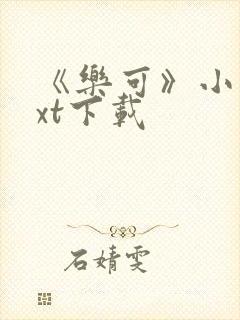 《樂可》小
xt下載
石婧雯